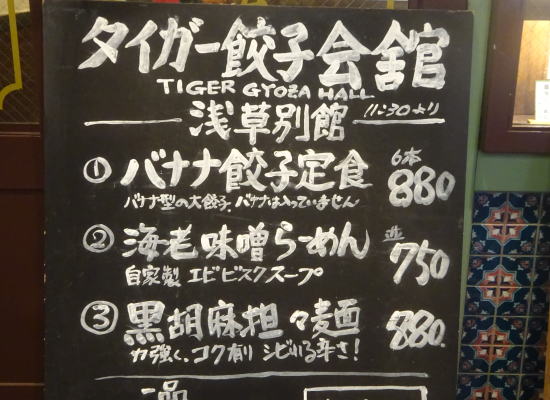 タイガー餃子会舘
TIGER GYOZA HALL
浅草別館 11:30より
① バナナ餃子定食 6本 880
バナナ型の大餃子、バナナは入っていません
② 海老味噌らーめん 並 750
自家製 エビビスクスープ
③ 黒胡麻担々麺 880
力強く、コク有り シビれる辛さ!